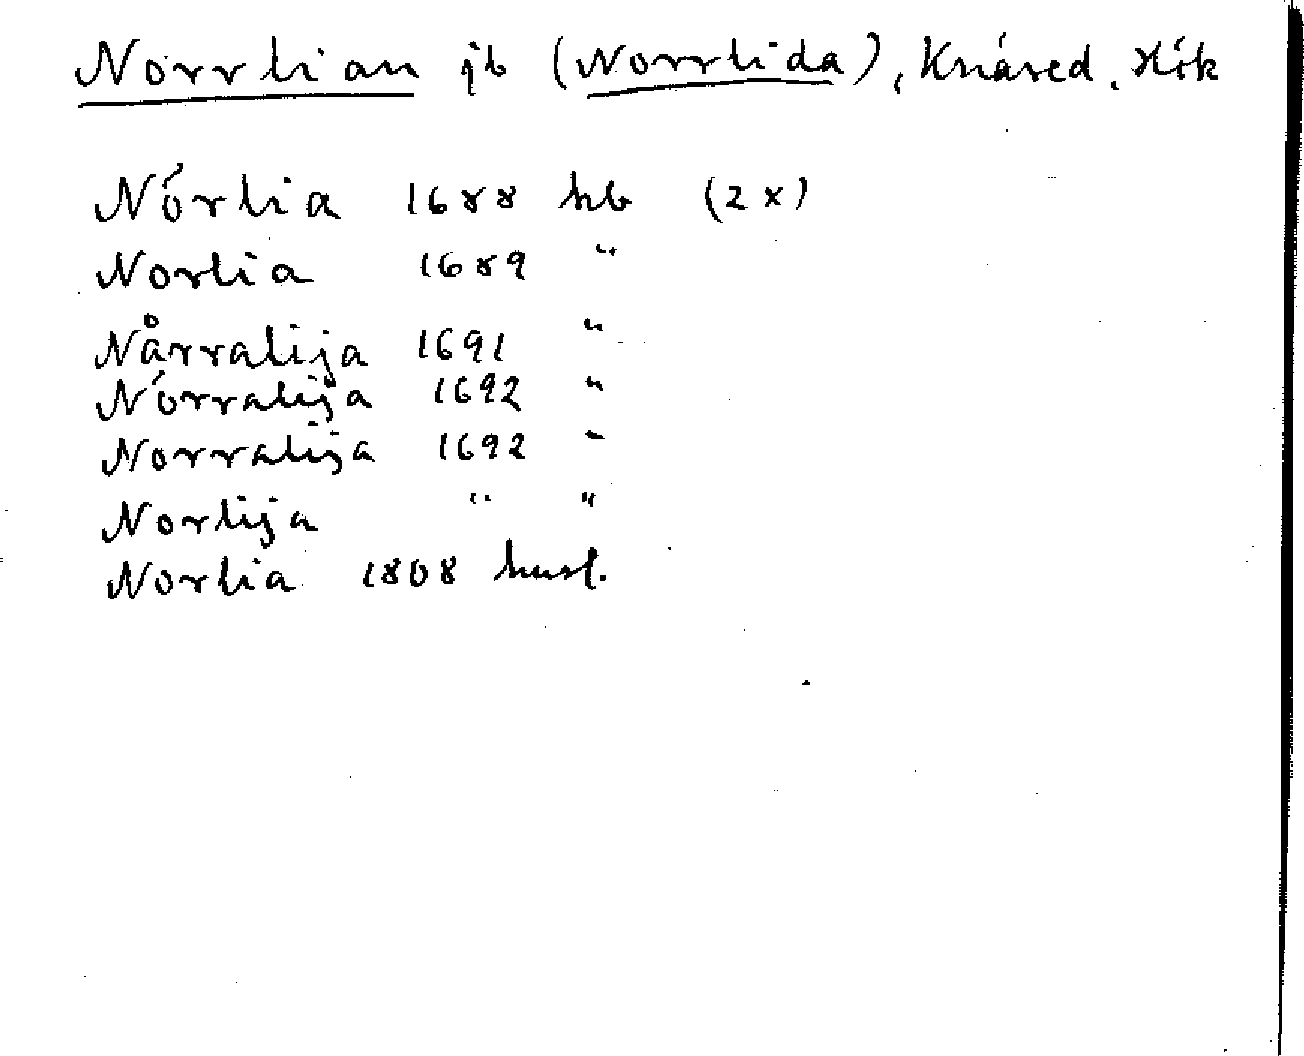 Norrlian jb (Norrlida), Knäred, Hök
Nórlia 1688 hb (2x)
Norlia 1689 "
Nårralija 1691 "
Nórralija 1692 "
Norralija 1692 "
Norlija " "
Norlia 1808 husf.